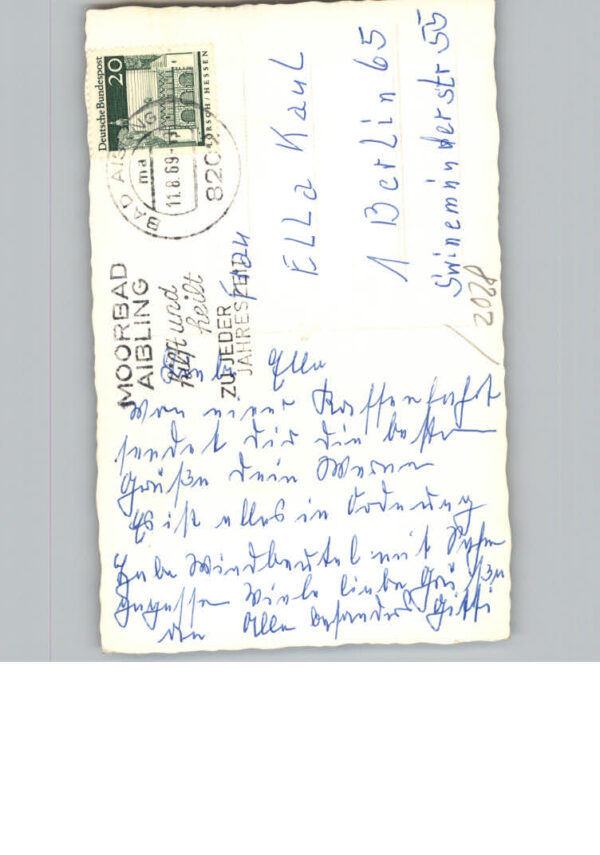 Deutsche Bundespost
20
LORSCH/HESSEN
BAD AIBLING
ma
11.8.69
8202
MOORBAD
AIBLING
hilft und
heilt
ZU JEDER
JAHRESZEIT
Frau
Ella Kaul
1 Berlin 65
Swinemünderstr 55
2028
Liebe Ella
Von einer Kaffeefahrt
sendet dir die besten
Grüße dein Werner
Es ist alles in Ordnung
Habe Windbeutel mit Sahne
gegessen Viele liebe Grüße
an Alle besonders Gitti